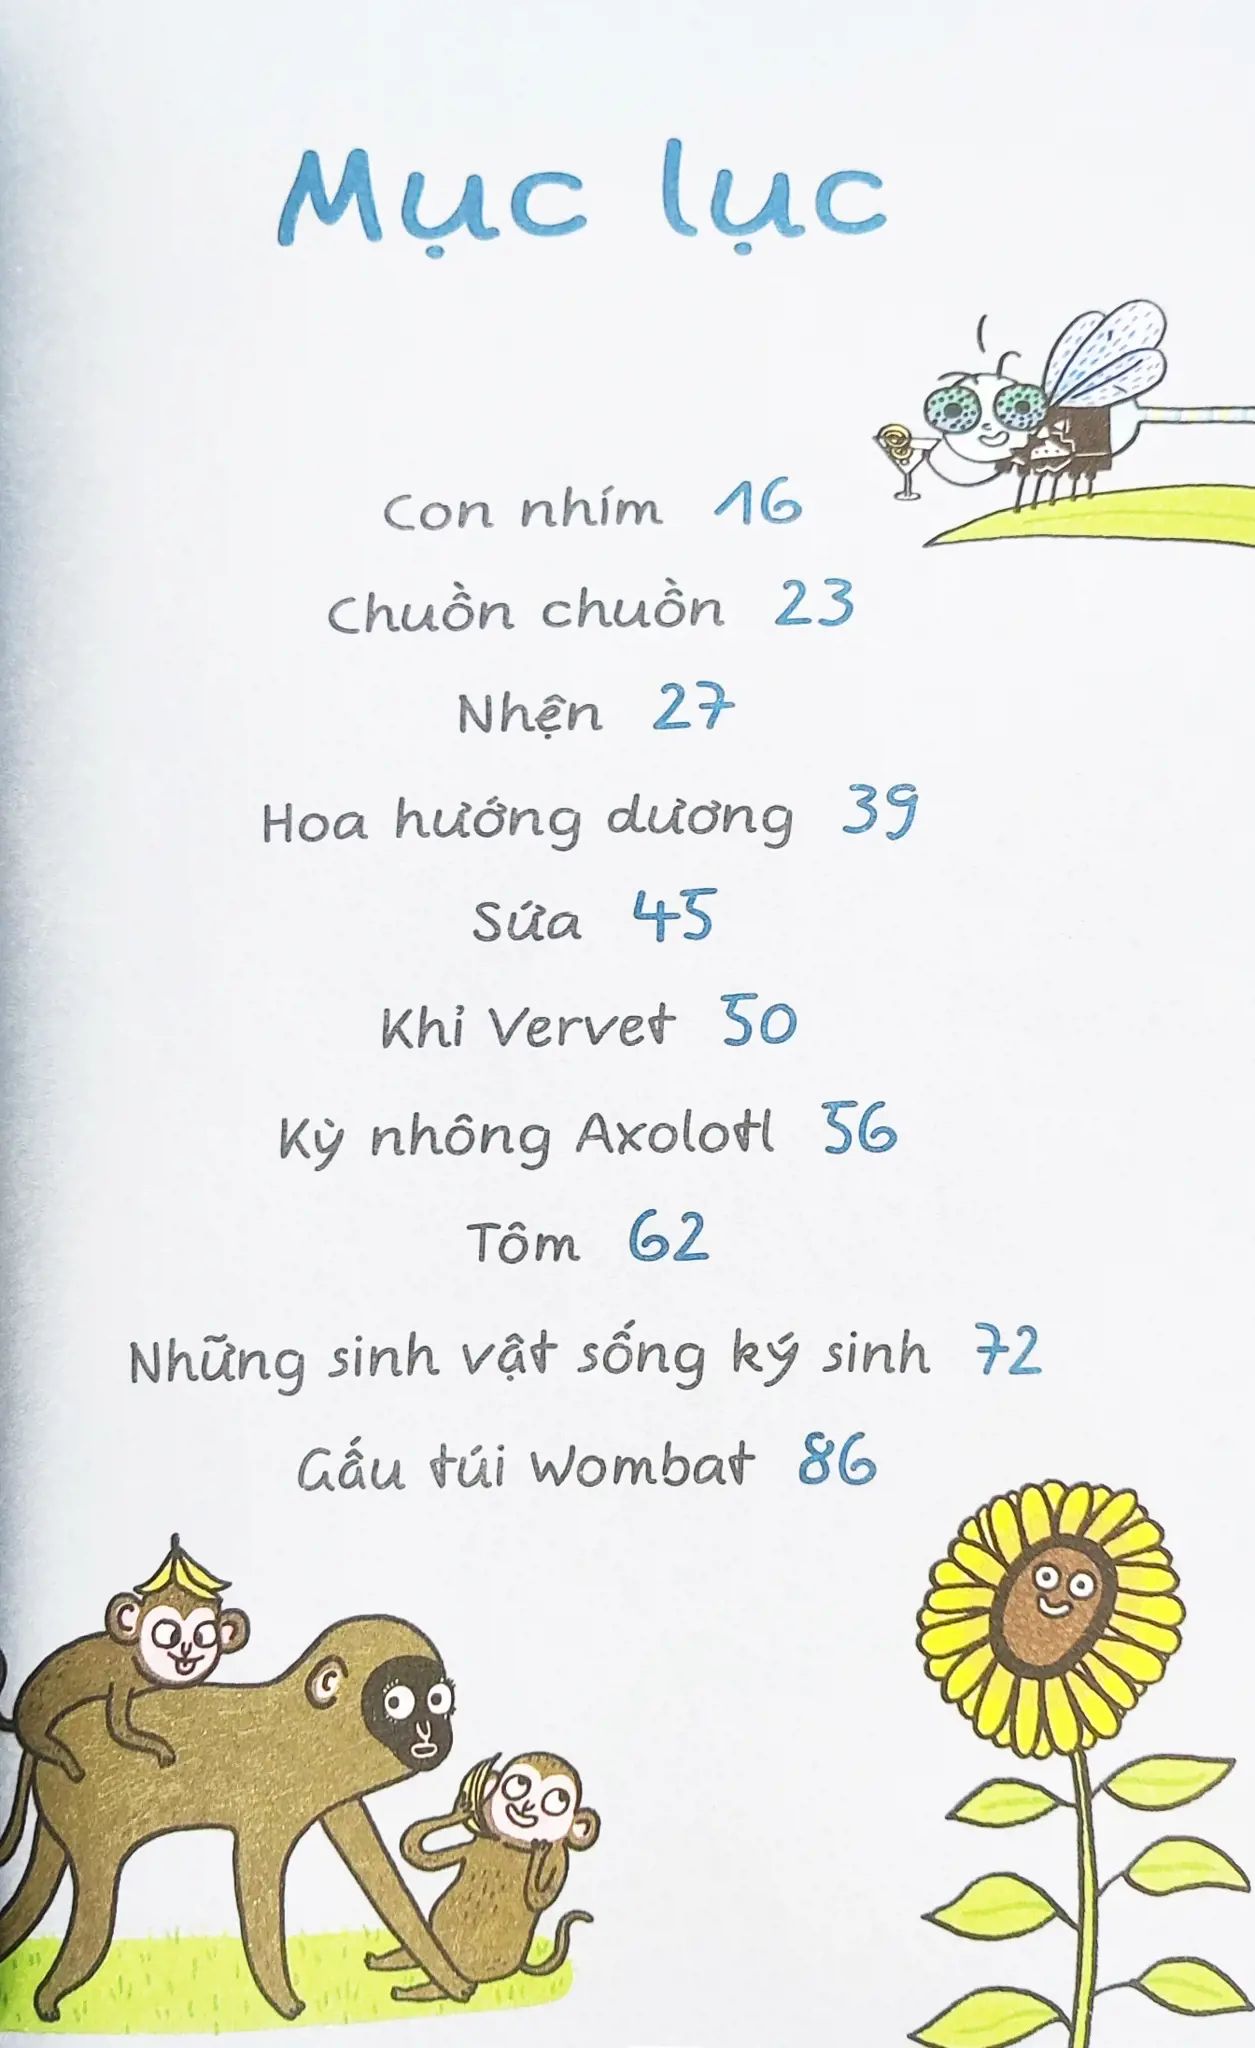 Mục lục
Con nhím 16
Chuồn chuồn 23
Nhện 27
Hoa hướng dương 39
Sứa 45
Khỉ Vervet 50
Kỳ nhông Axolotl 56
Tôm 62
Những sinh vật sống ký sinh 72
Gấu túi Wombat 86